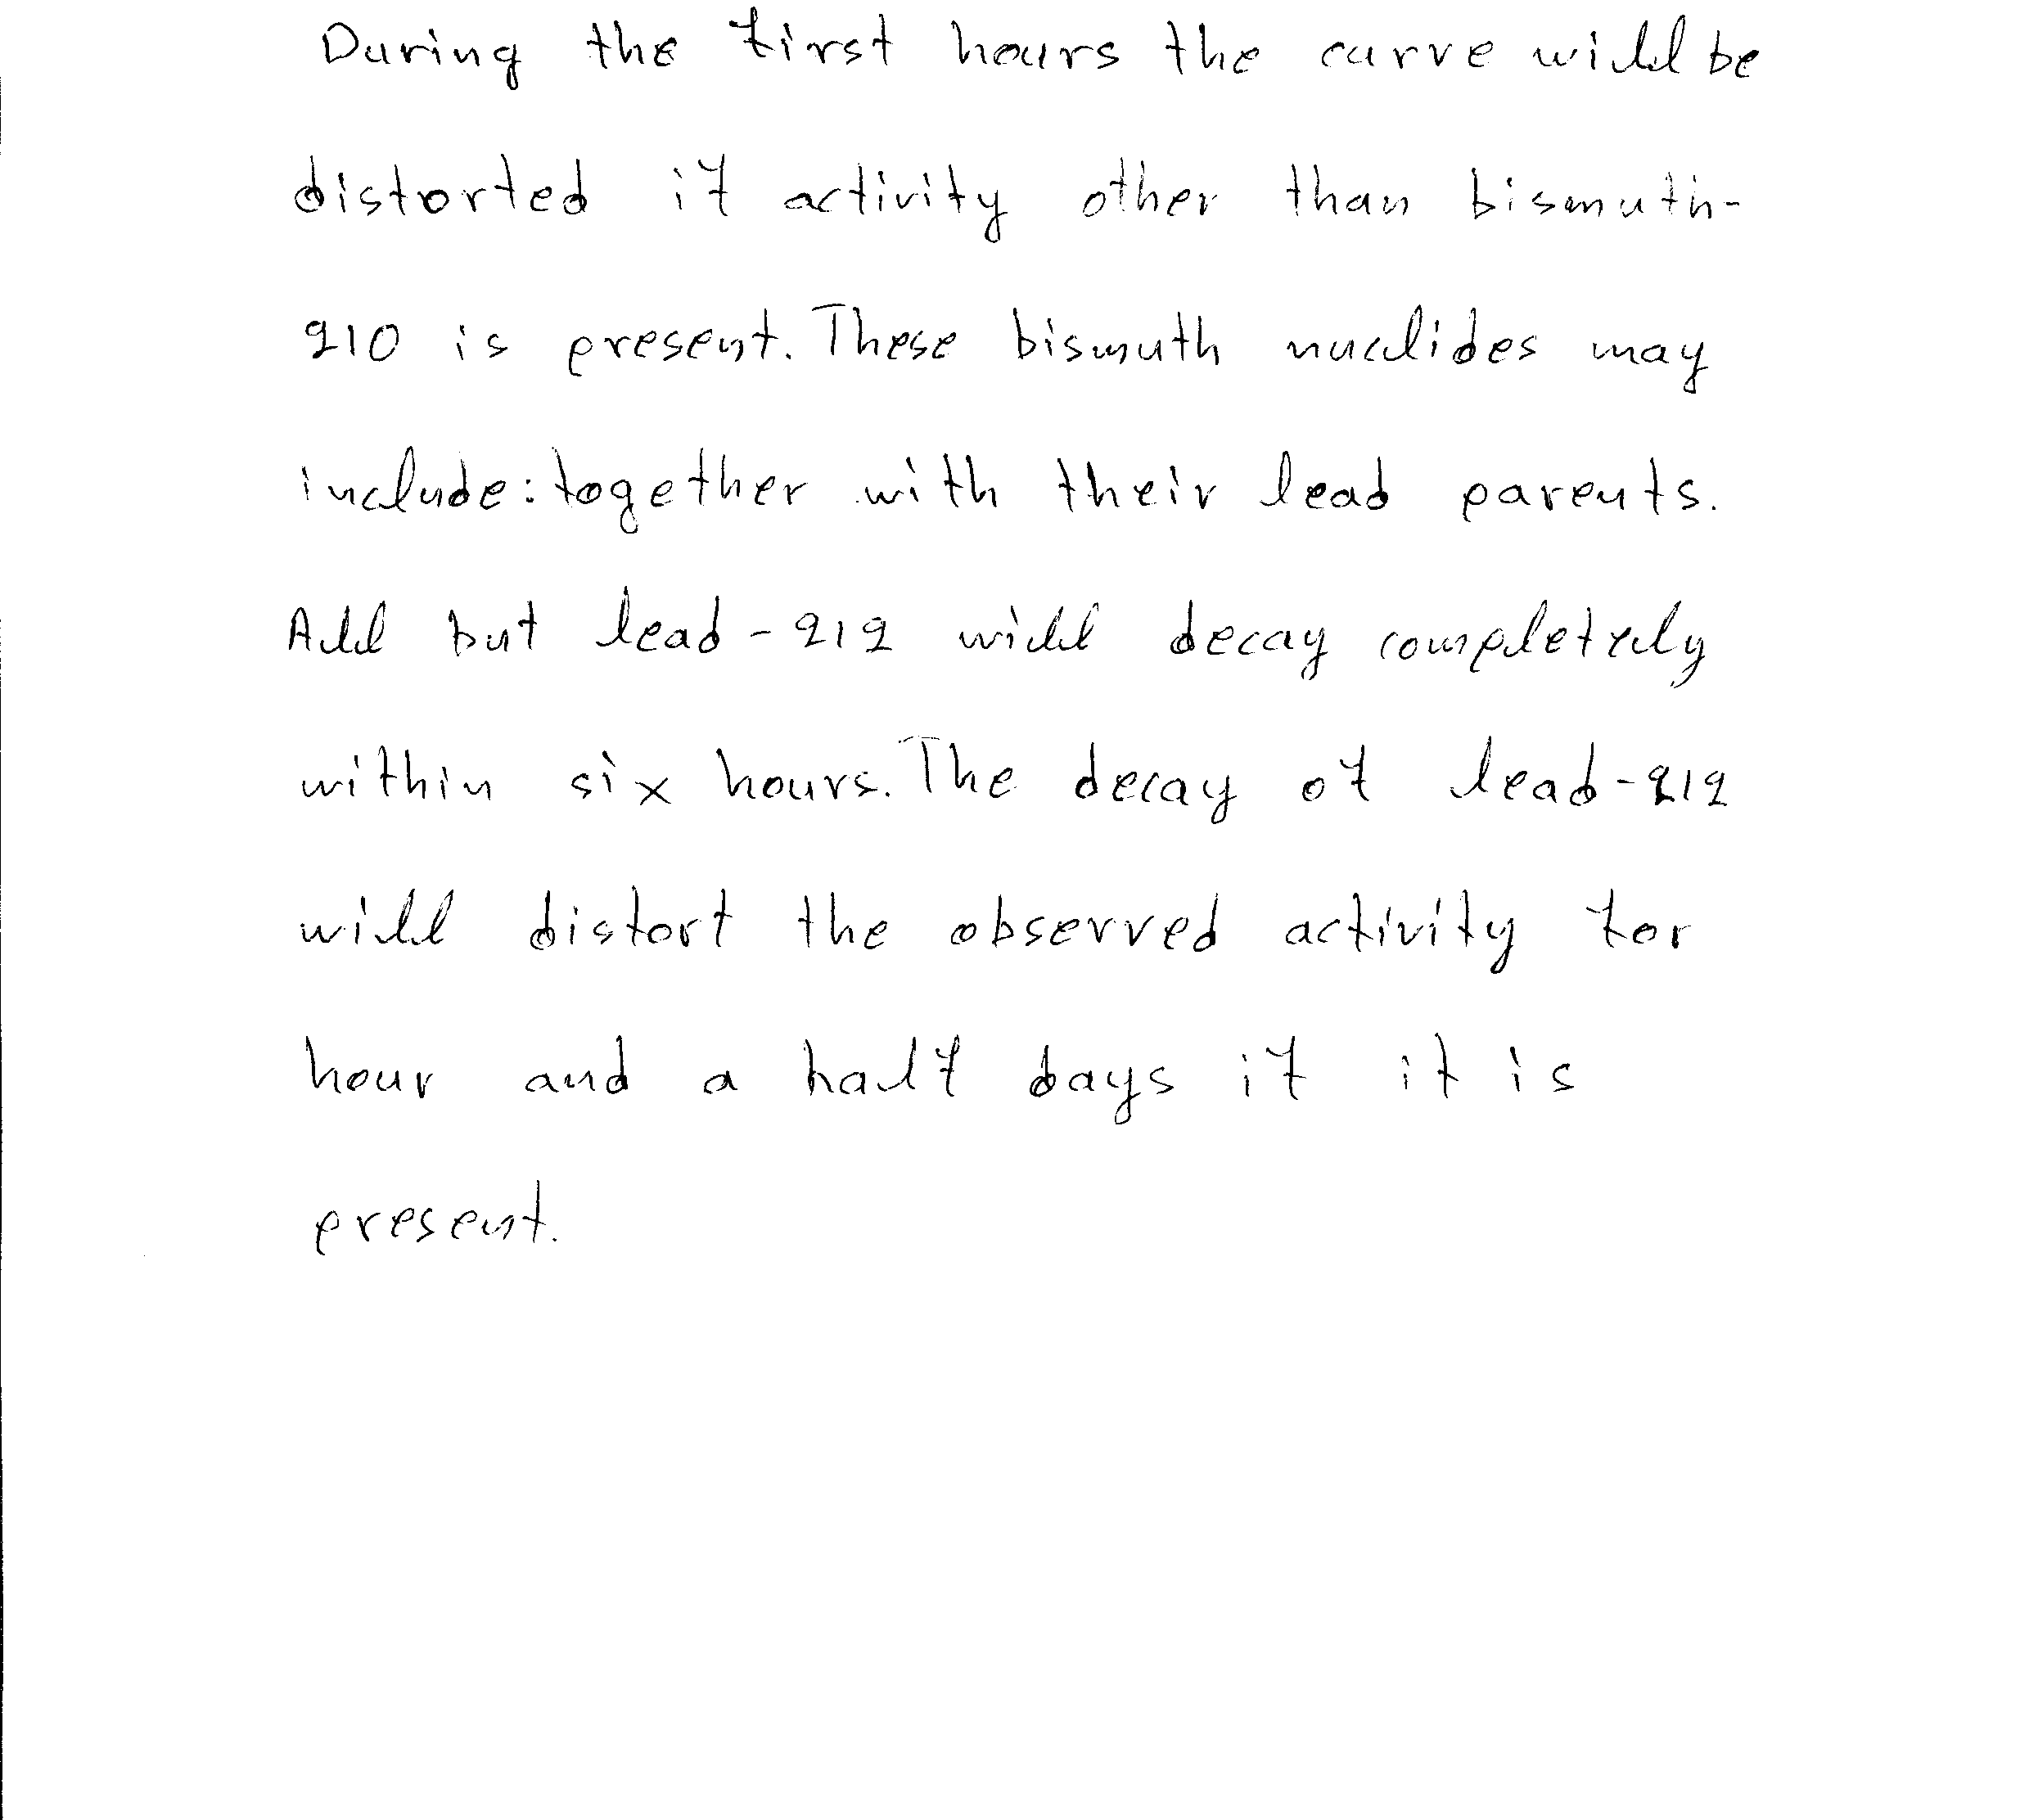 During the first hours the curve will be
distorted if activity other than bismuth-
210 is present. These bismuth nuclides may
include: together with their lead parents.
All but lead-212 will decay completely
within six hours. The decay of lead-212
will distort the observed activity for
hour and a half days if it is
present.